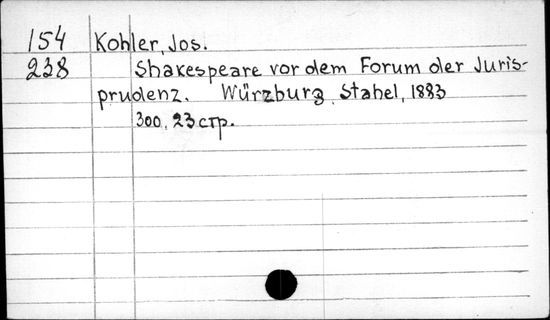 154 Kohler, Jos.
238 Shakespeare vor dem Forum der Juris-
prudenz. Würzburg, Stahel, 1883
300, 23 стр.